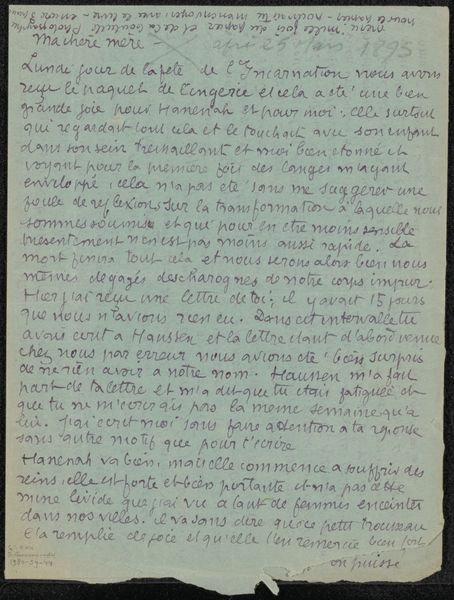 merci mille fois du papier et de la bouteille Photographe
nous le papier – pourrais tu m'en envoyer avec le livre – encore 3 fois
Ma chère mère –
après 25 Mars 1895
Lundi jour de la fete de l'Incarnation nous avons
reçu le paquet de lingerie et cela a eté une bien
grande joie pour Hanenah et pour moi: elle surtout
qui regardant tout cela et le touchait avec son enfant
dans son sein tressaillant et moi bien etonné et
voyant pour la première fois des langes m'ayant
enveloppé, cela n'a pas eté sans me suggerer une
foule de reflexions sur la transformation à laquelle nous
sommes soumis et qui pour en etre moins sensible
presentement n'en est pas moins aussi rapide. La
mort finira tout cela et nous serons alors bien nous
mêmes degagés des charognes de notre corps impur.
Hier j'ai reçu une lettre de toi; il y avait 15 jours
que nous n'avions rien eu. Dans cet intervalle tu
avais ecrit a Hanssen et la lettre etant d'abord venue
chez nous par erreur nous avions eté bien surpris
de ne rien avoir a notre nom. Haussen m'a fait
part de ta lettre et m'a dit que tu etais fatiguée et
que tu ne m'ecrirais pas la meme semaine qu'a
lui. J'ai ecrit moi sans faire attention a ta reponse
sans autre motif que pour t'ecrire
Hanenah va bien, mais elle commence a souffrir des
reins; elle est forte et bien portante et n'a pas cette
mine livide que j'ai vue a tant de femmes enceintes
dans nos villes. Il va sans dire que ce petit trousseau
l'a remplie de joie et qu'elle t'en remercie bien fort
on puisse
1984-39-44